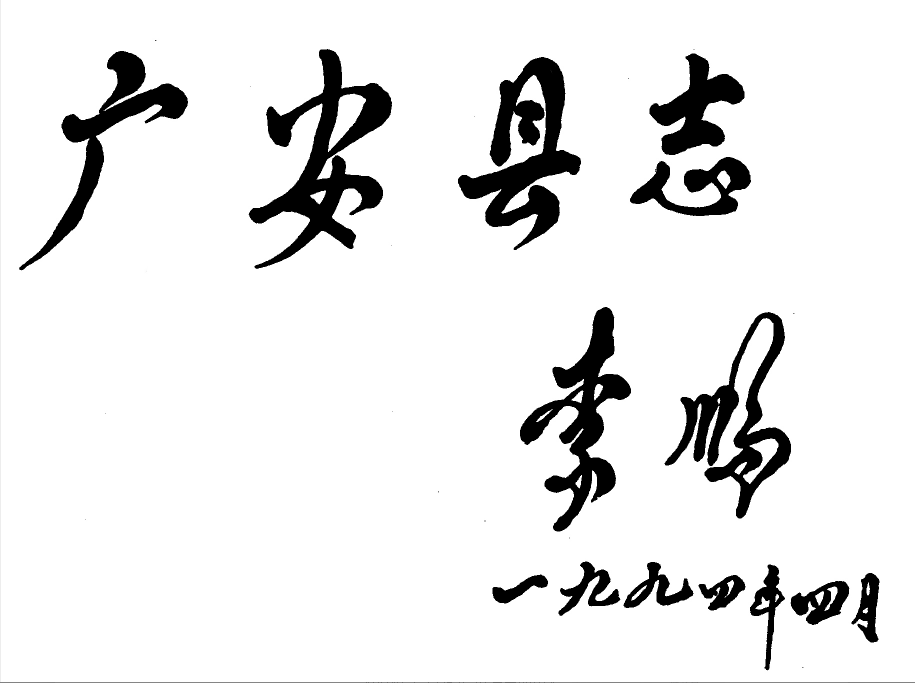 广安县志
李鹏
一九九四年四月